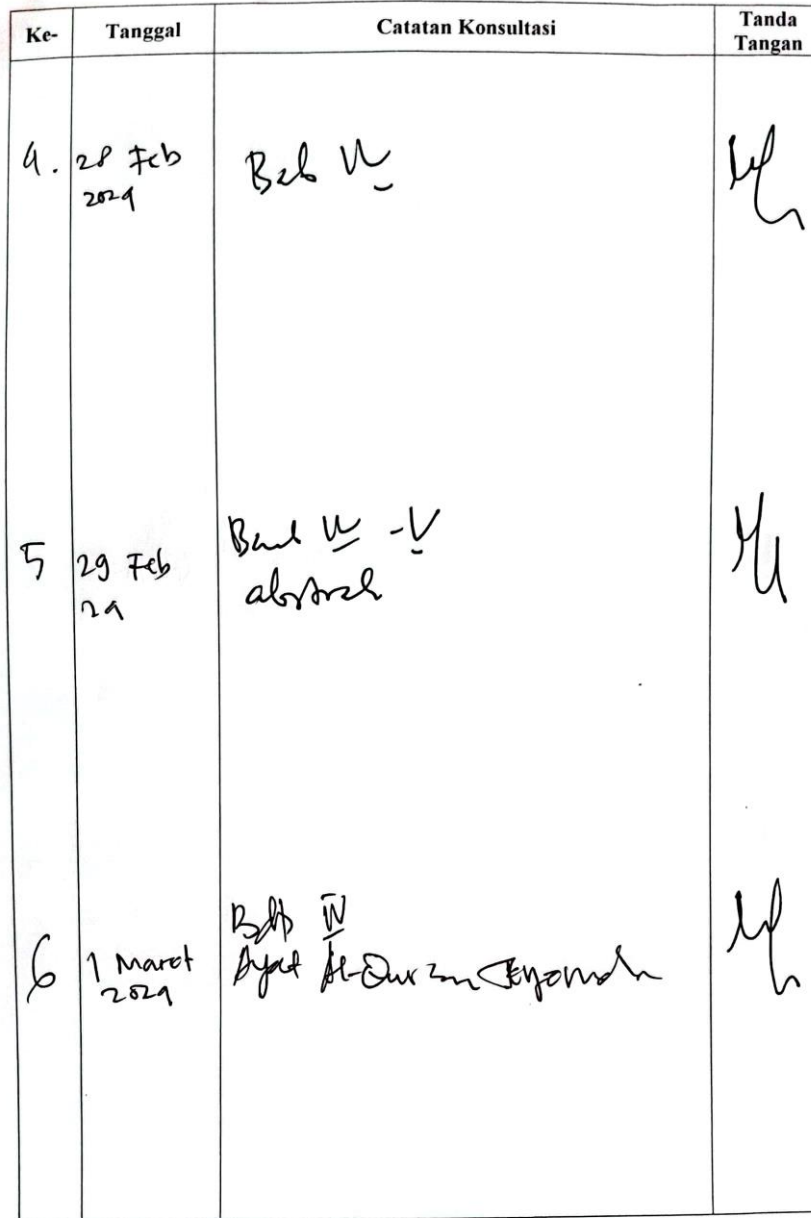 Ke- Tanggal Catatan Konsultasi Tanda Tangan
4. 28 Feb 2024 Bab IV
5 29 Feb 24 Bab IV - V
abstrak
6 1 Maret 2024 Bab IV
Ayat Al-Qur'an